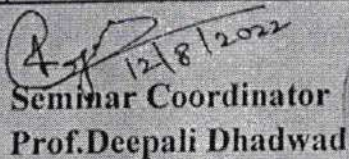 12/8/2022
Seminar Coordinator
Prof.Deepali Dhadwad